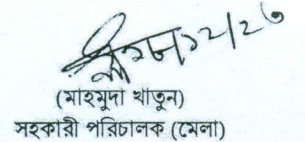 (মাহমুদা খাতুন)
সহকারী পরিচালক (মেলা)